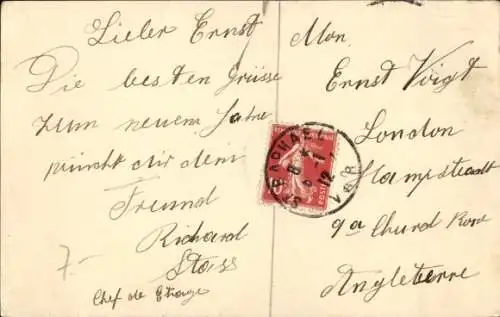 Lieber Ernst
Die besten Grüsse
zum neuem Jahre
wünscht dir dein
Freund
Richard
Stoiss
Chef de Etrange
7.-
Mon.
Ernst Voigt
London
Hampsteadt
9a Churd Rowe
Angleterre
ST RAPHAEL
8 * 
6 - 1
12
VAR